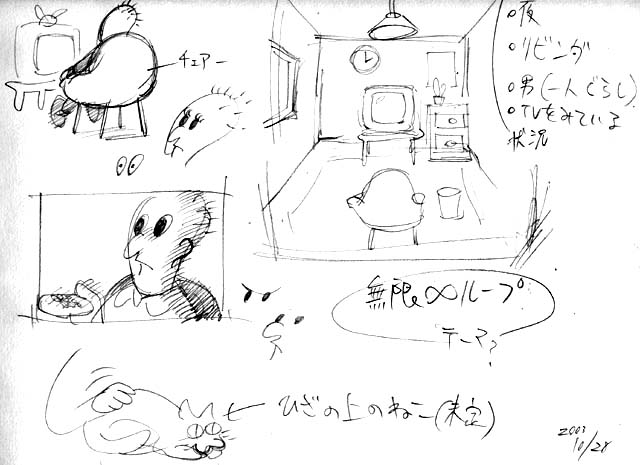 チェアー
○夜
○リビング
○男(一人ぐらし)
○TVをみている
状況
無限∞ループ
テーマ?
ひざの上のねこ(未定)
2003
10/28